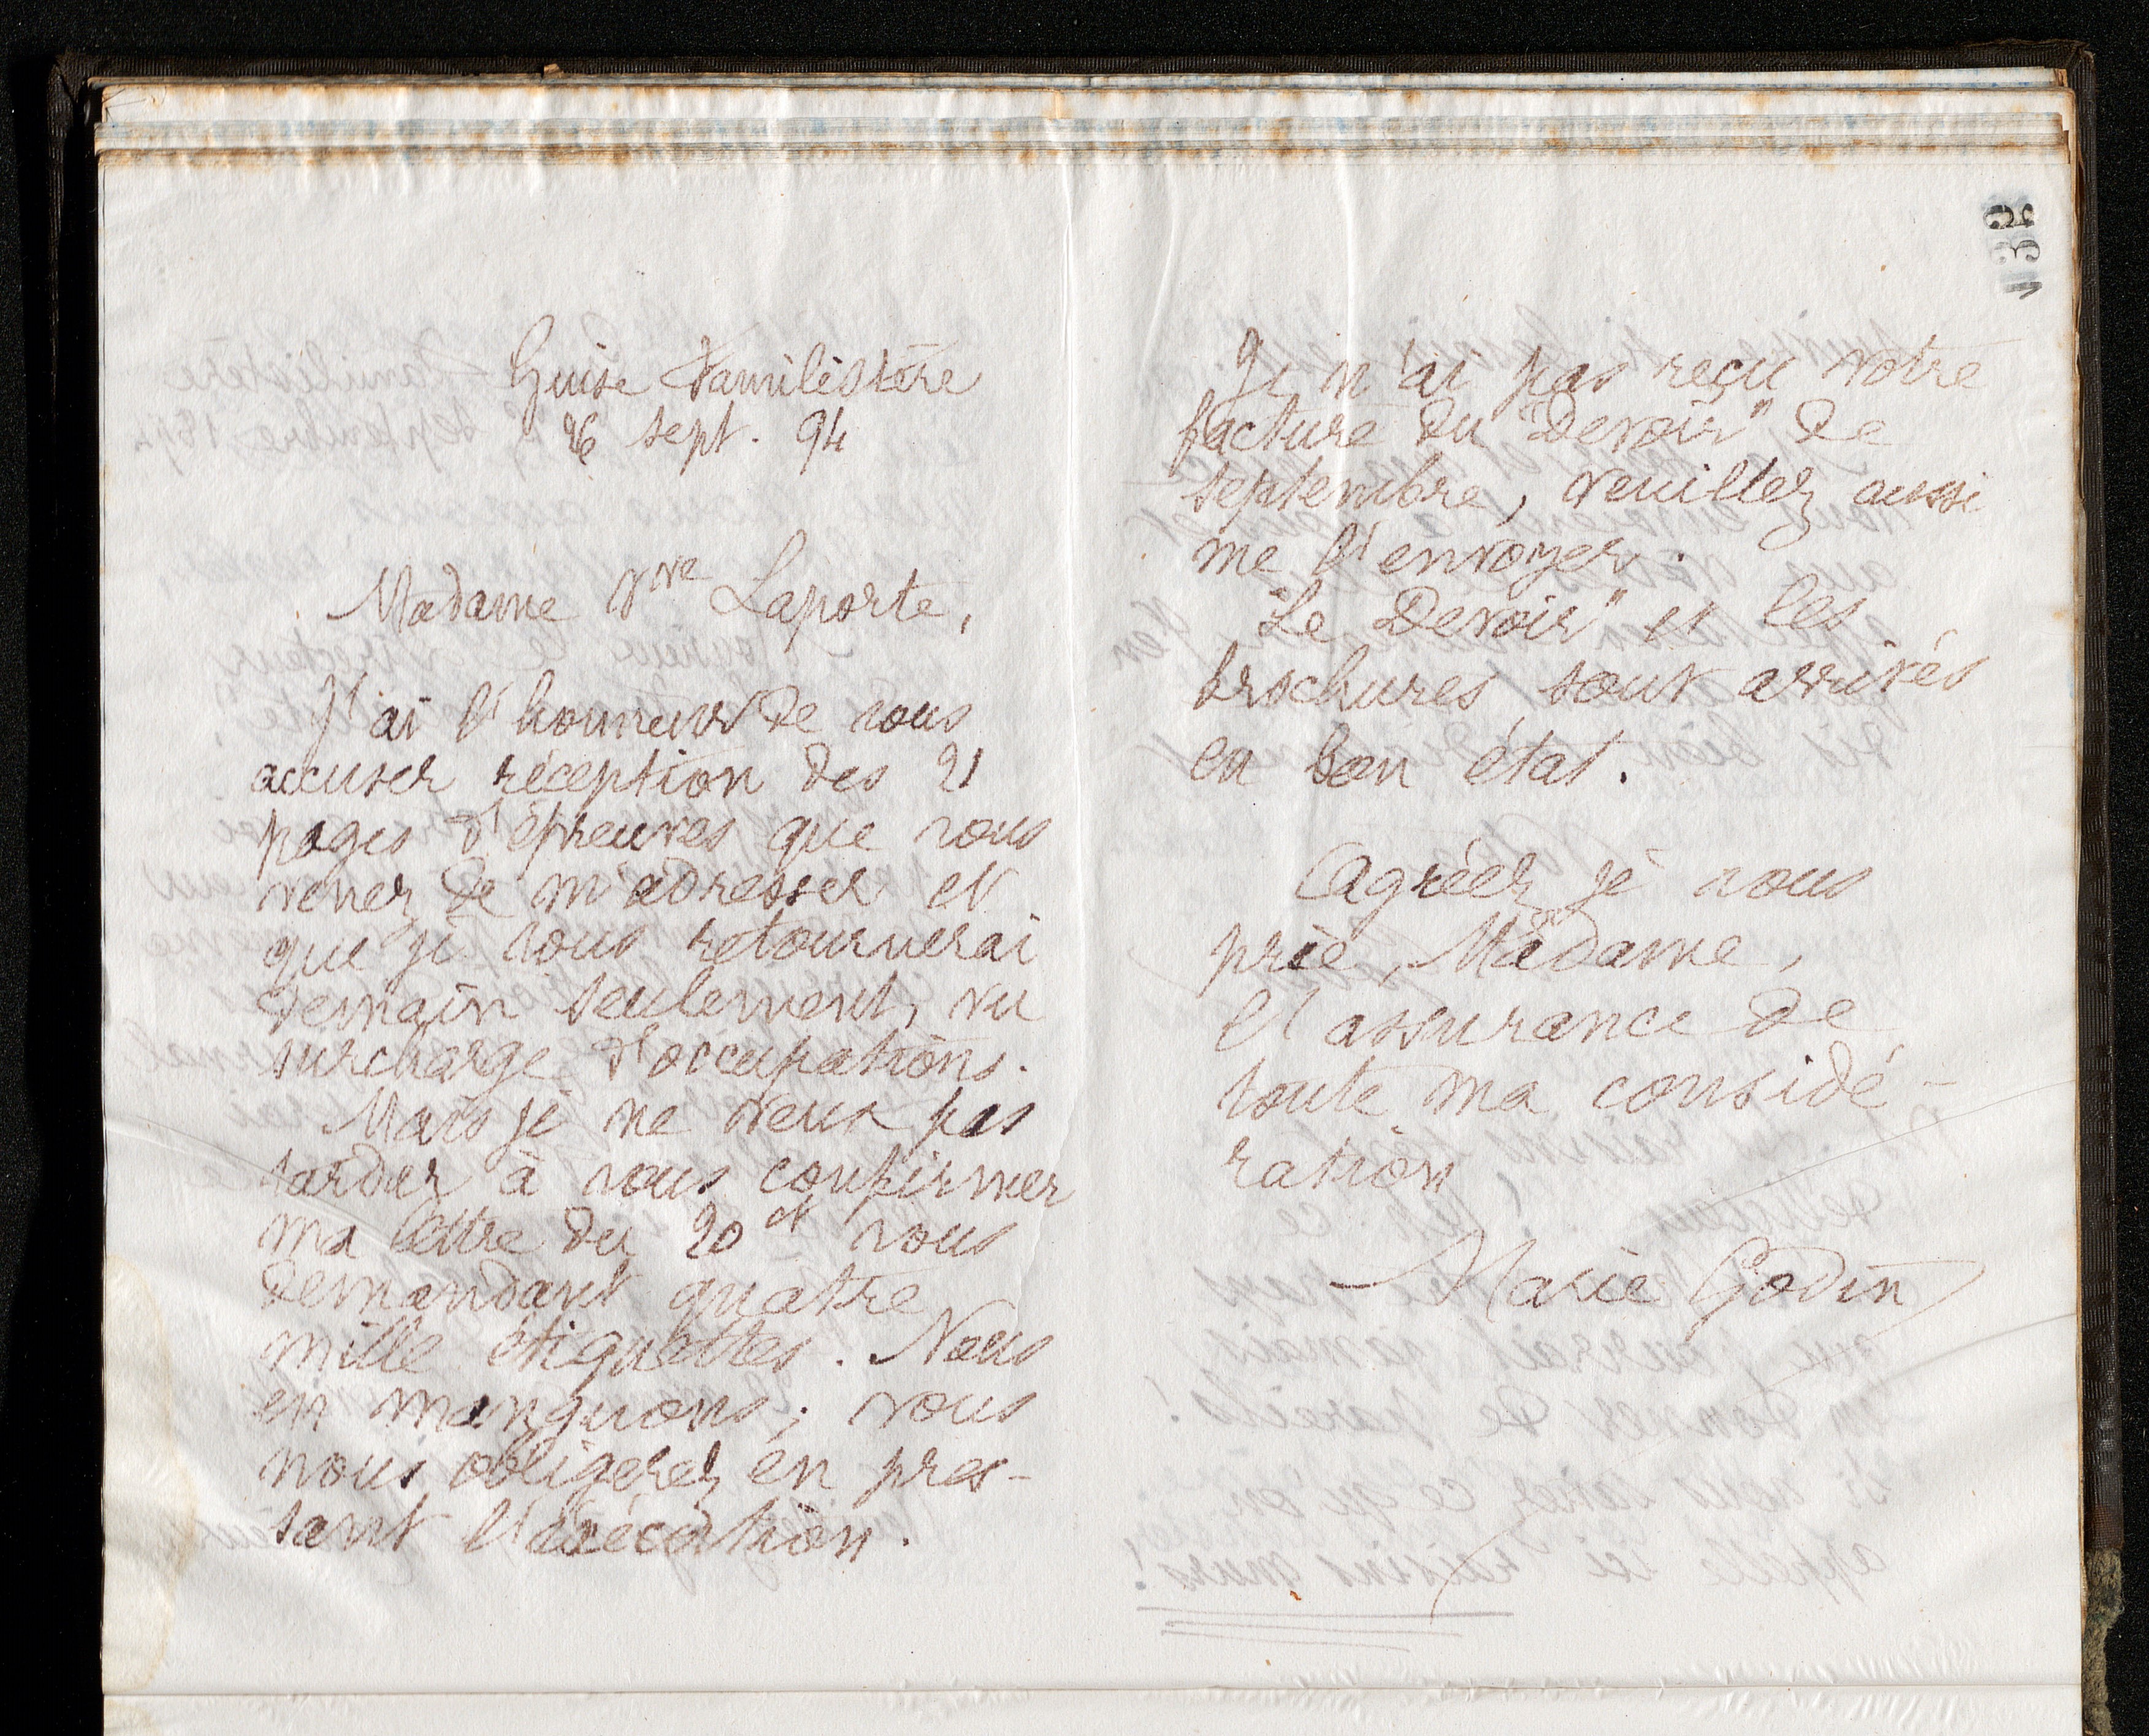 132
Guise Familistère
26 sept. 94
Madame Vve Laporte,
J'ai l'honneur de vous
accuser réception des 21
pages d'épreuves que vous
venez de m'adresser et
que je vous retournerai
demain seulement, vu
surcharge d'occupations.
Mais je ne veux pas
tarder à vous confirmer
ma lettre du 20 ct vous
demandant quatre
mille étiquettes. Nous
en manquons; vous
nous obligerez en pres-
sant l'exécution.
Je n'ai pas reçu votre
facture du "Devoir" de
septembre, veuillez aussi
me l'envoyer.
"Le Devoir" et les
brochures sont arrivés
en bon état.
Agréez je vous
prie, Madame,
l'assurance de
toute ma considé-
ration
Marie Godin